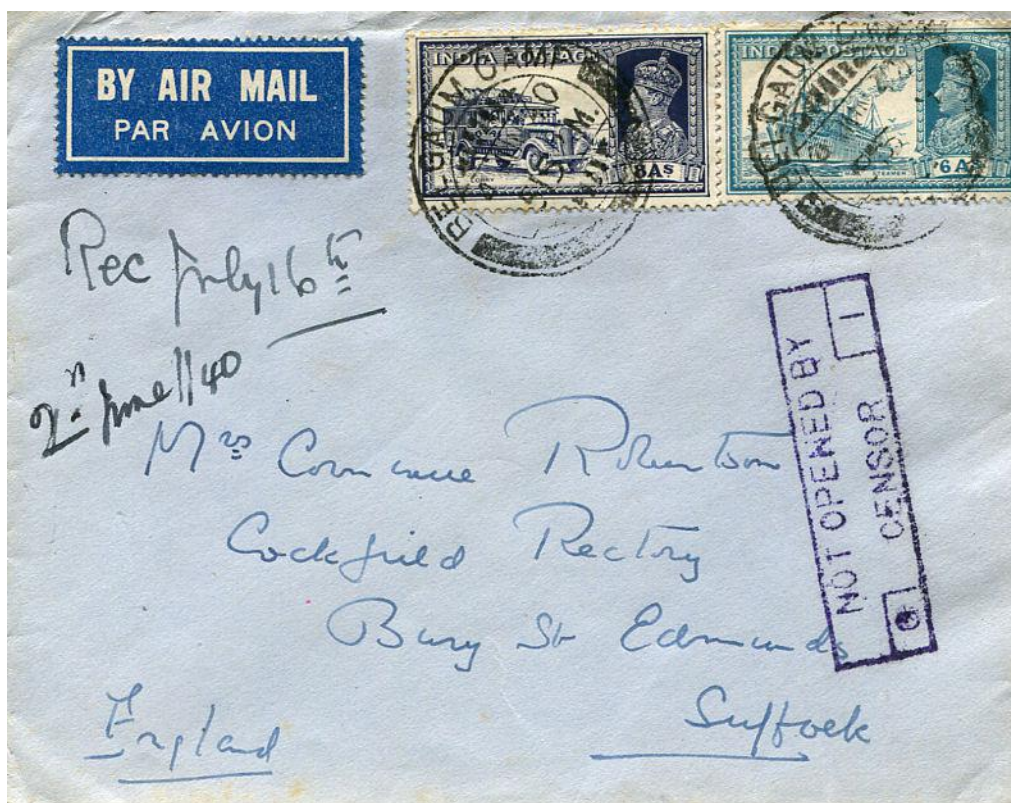 BY AIR MAIL
PAR AVION
INDIA POSTAGE
8 As
INDIA POSTAGE
6 As
BELGAUM
BELGAUM
Rec July 16th
2n June 1940
NOT OPENED BY
CENSOR
1
Mrs Robertson
Cockfield Rectory
Bury St Edmunds
Suffolk
England